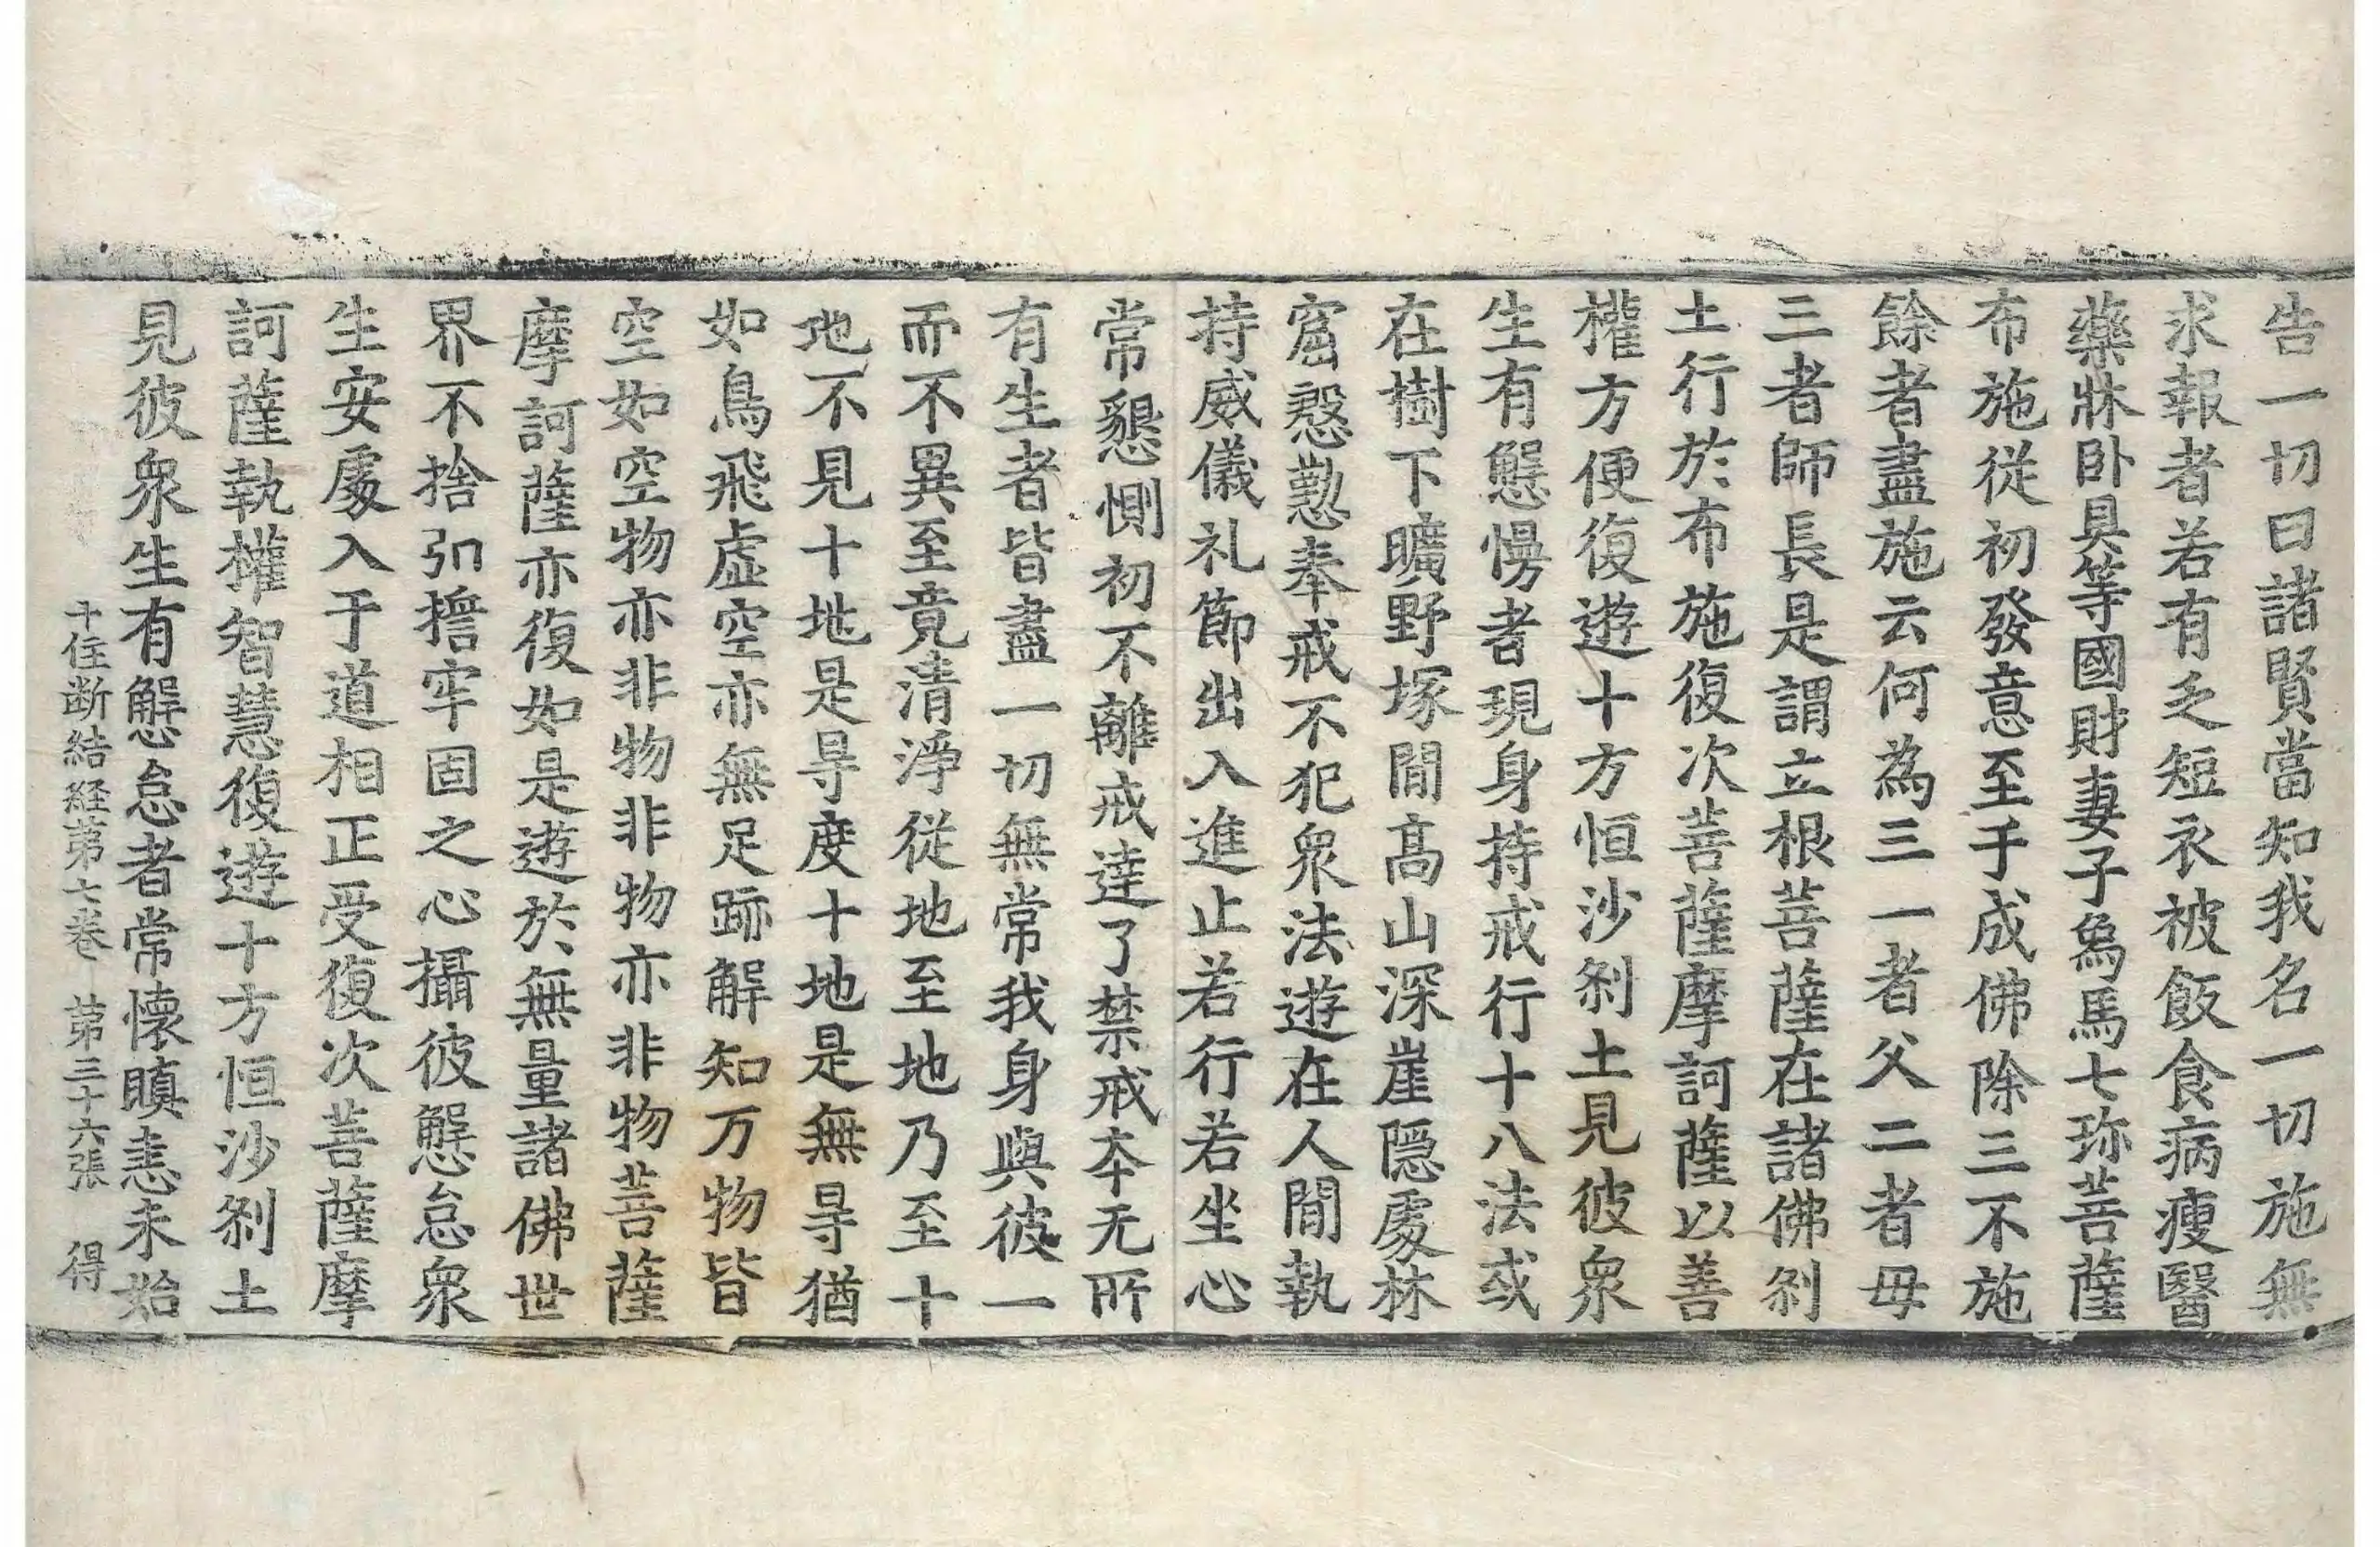 告一切曰諸賢當知我名一切施無
求報者若有乏短衣被飯食病瘦醫
藥牀卧具等國財妻子爲馬七珎菩薩
布施從初發意至于成佛除三不施
餘者盡施云何為三一者父二者母
三者師長是謂立根菩薩在諸佛刹
土行於布施復次菩薩摩訶薩以善
權方便復遊十方恒沙刹土見彼衆
生有慢慢者現身持戒行十八法或
在樹下曠野塚間髙山深崖隱處林
窟慇懃奉戒不犯衆法遊在人間執
持威儀礼節出入進止若行若坐心
常懇惻初不離戒達了禁戒夲无所
有生者皆盡一切無常我身與彼一
而不異至竟清淨從地至地乃至十
地不見十地是㝵度十地是無㝵猶
如鳥飛虛空亦無足跡解知万物皆
空如空物亦非物非物亦非物菩薩
摩訶薩亦復如是遊於無量諸佛世
界不捨弘擔牢固之心攝彼懈怠衆
生安處入于道相正受復次菩薩摩
訶薩執權智慧復遊十方恒沙刹土
見彼衆生有懈怠者常懷瞋恚未始
十住断結経第七卷 第三十六張 得